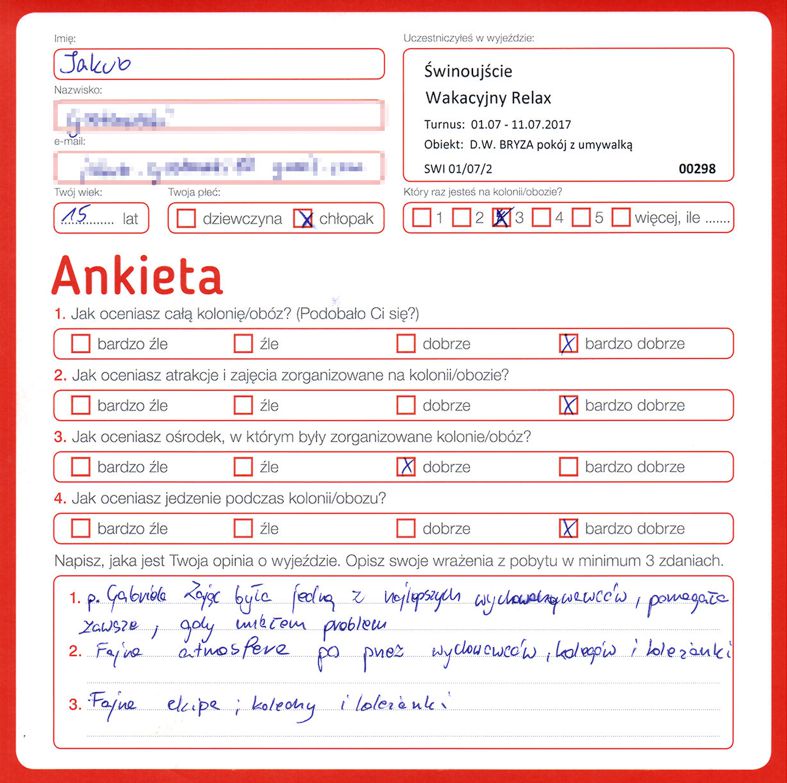 Imię:
Jakub
Nazwisko:
e-mail:
Twój wiek:
15 lat
Twoja płeć:
dziewczyna chłopak
Uczestniczyłeś w wyjeździe:
Świnoujście
Wakacyjny Relax
Turnus: 01.07 - 11.07.2017
Obiekt: D.W. BRYZA pokój z umywalką
SWI 01/07/2 00298
Który raz jesteś na kolonii/obozie?
1 2 3 4 5 więcej, ile .......
Ankieta
1. Jak oceniasz całą kolonię/obóz? (Podobało Ci się?)
bardzo źle źle dobrze bardzo dobrze
2. Jak oceniasz atrakcje i zajęcia zorganizowane na kolonii/obozie?
bardzo źle źle dobrze bardzo dobrze
3. Jak oceniasz ośrodek, w którym były zorganizowane kolonie/obóz?
bardzo źle źle dobrze bardzo dobrze
4. Jak oceniasz jedzenie podczas kolonii/obozu?
bardzo źle źle dobrze bardzo dobrze
Napisz, jaka jest Twoja opinia o wyjeździe. Opisz swoje wrażenia z pobytu w minimum 3 zdaniach.
1. p. Gabriela Zając była jedną z najlepszych , pomagała
zawsze, gdy miałem problem
2. Fajna atmosfera po przez wychowawców, kolegów i koleżanki
3. Fajna ekipa ; koledzy i koleżanki